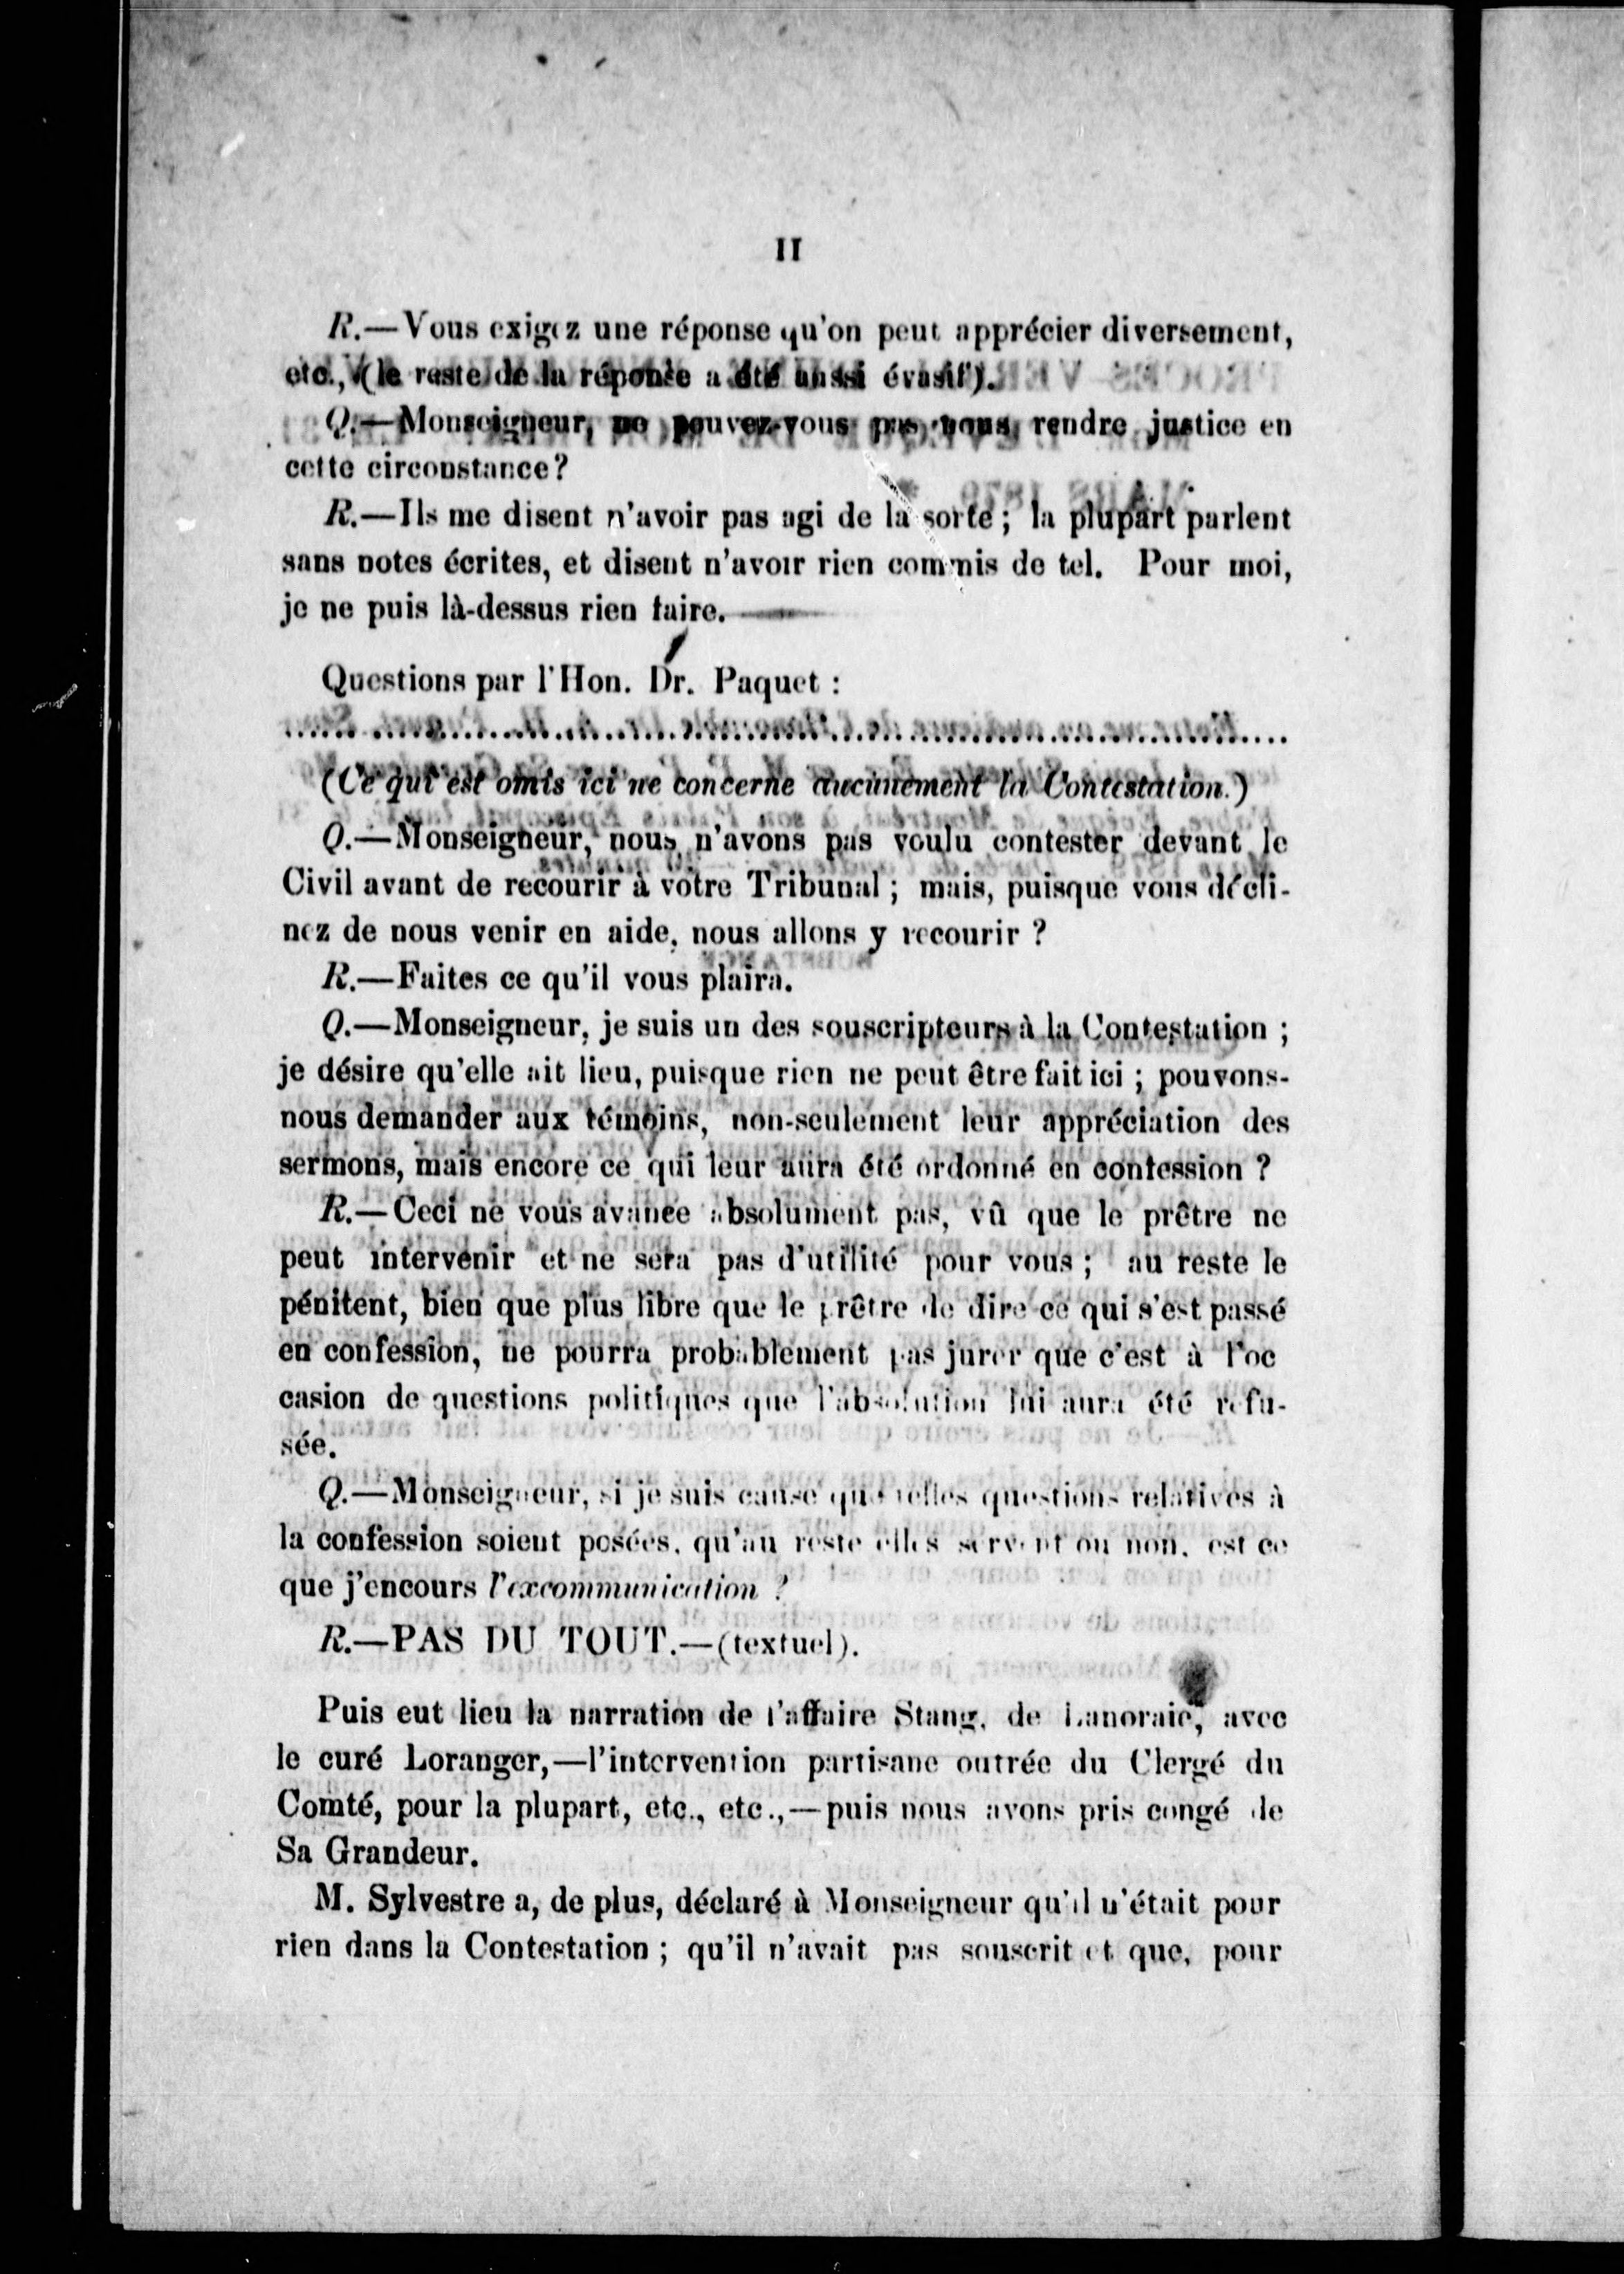 II
R.—Vous exigez une réponse qu'on peut apprécier diversement,
etc., (le reste de la réponse a été aussi évasif).
Q.—Monseigneur, ne pouvez-vous pas nous rendre justice en
cette circonstance?
R.—Ils me disent n'avoir pas agi de la sorte; la plupart parlent
sans notes écrites, et disent n'avoir rien commis de tel. Pour moi,
je ne puis là-dessus rien faire.——
Questions par l'Hon. Dr. Paquet :
..........................................................................
(Ce qui est omis ici ne concerne aucunement la Contestation.)
Q.—Monseigneur, nous n'avons pas voulu contester devant le
Civil avant de recourir à votre Tribunal ; mais, puisque vous décli-
nez de nous venir en aide, nous allons y recourir ?
R.—Faites ce qu'il vous plaira.
Q.—Monseigneur, je suis un des souscripteurs à la Contestation ;
je désire qu'elle ait lieu, puisque rien ne peut être fait ici ; pouvons-
nous demander aux témoins, non-seulement leur appréciation des
sermons, mais encore ce qui leur aura été ordonné en confession ?
R.—Ceci ne vous avance absolument pas, vû que le prêtre ne
peut intervenir et ne sera pas d'utilité pour vous ; au reste le
pénitent, bien que plus libre que le prêtre de dire ce qui s'est passé
en confession, ne pourra probablement pas jurer que c'est à l'oc
casion de questions politiques que l'absolution lui aura été refu-
sée.
Q.—Monseigneur, si je suis cause que telles questions relatives à
la confession soient posées, qu'au reste elles servent ou non, est ce
que j'encours l'excommunication ?
R.—PAS DU TOUT.—(textuel).
Puis eut lieu la narration de l'affaire Stang, de Lanoraie, avec
le curé Loranger,—l'intervention partisane outrée du Clergé du
Comté, pour la plupart, etc., etc.,—puis nous avons pris congé de
Sa Grandeur.
M. Sylvestre a, de plus, déclaré à Monseigneur qu'il n'était pour
rien dans la Contestation ; qu'il n'avait pas souscrit et que, pour